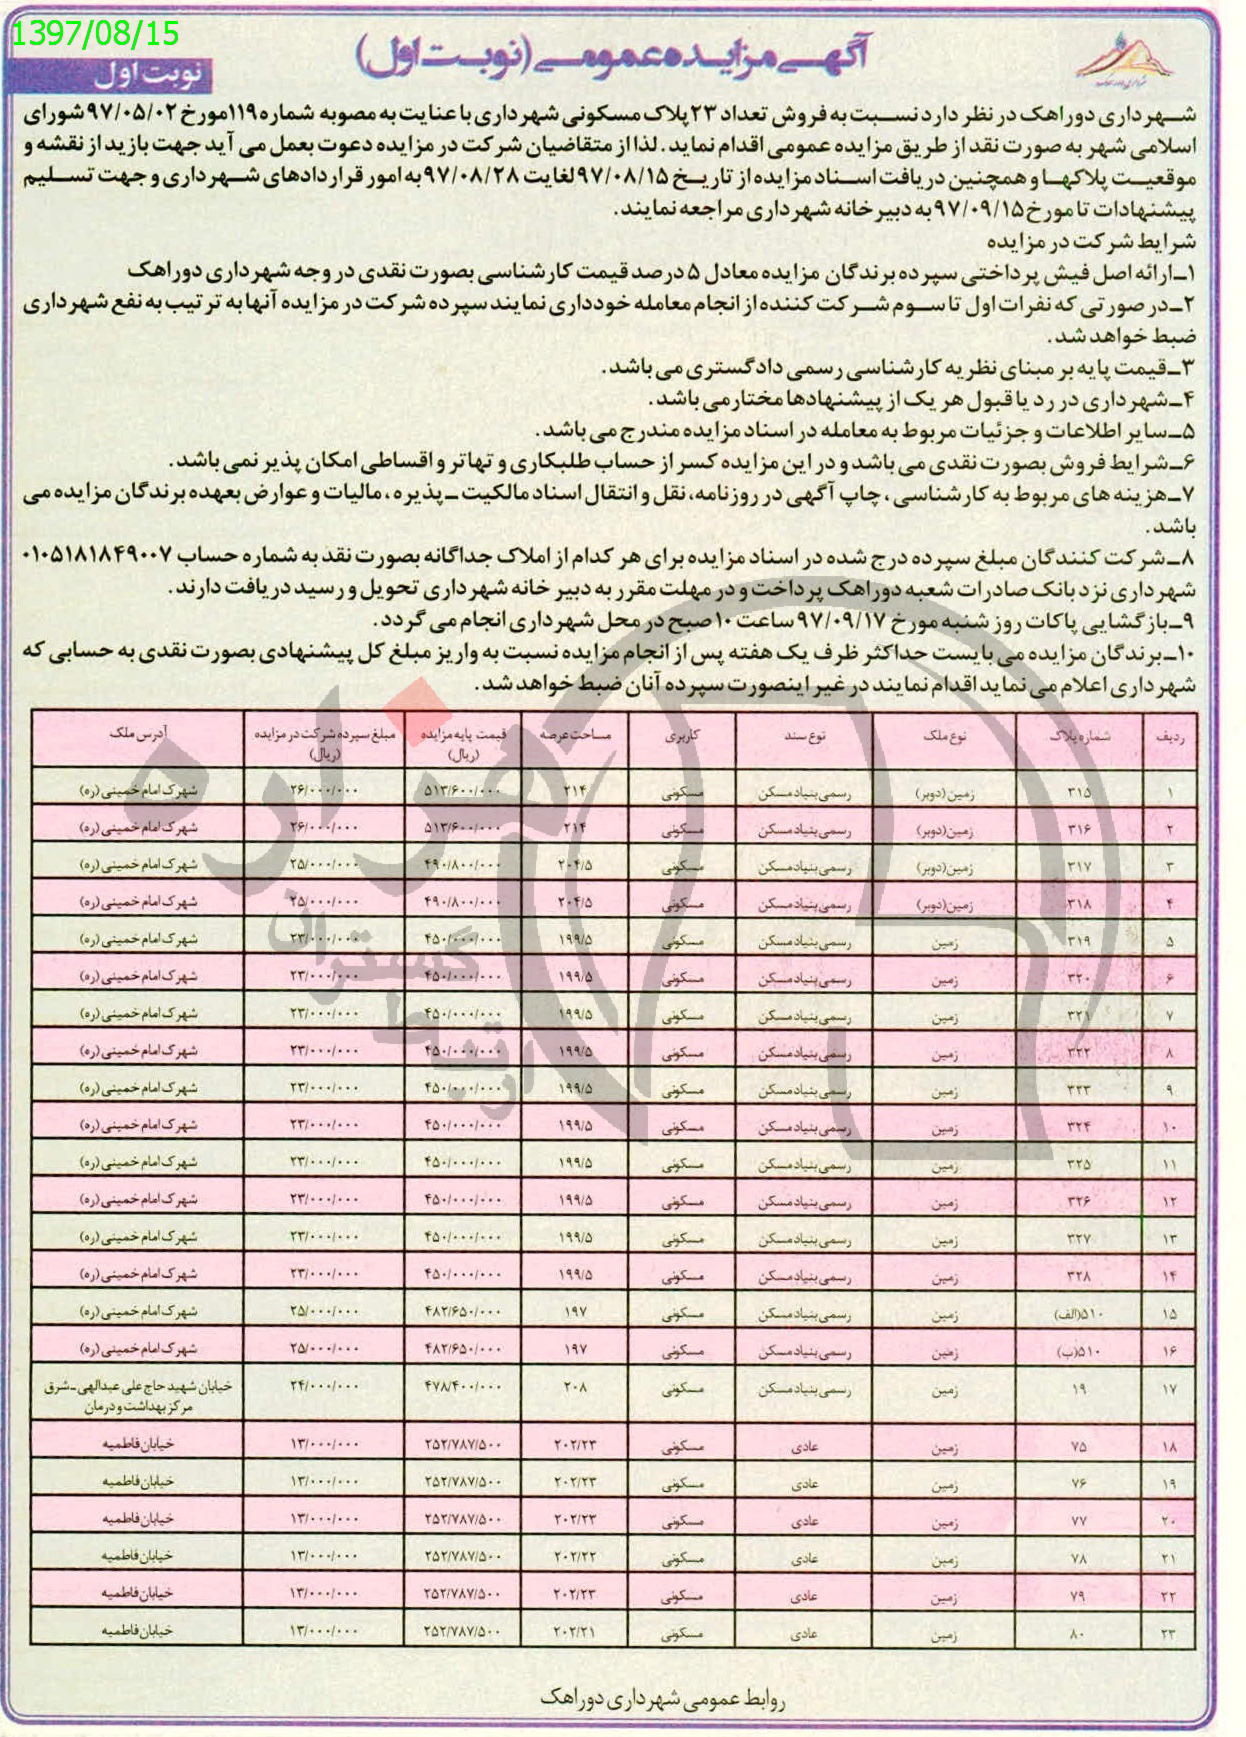 1397/08/15
آگهی مزایده عمومی (نوبت اول)
نوبت اول
شهرداری دوراهک در نظر دارد نسبت به فروش تعداد ۲۳ پلاک مسکونی شهرداری با عنایت به مصوبه شماره ۱۱۹ مورخ ۹۷/۰۵/۰۲ شورای
اسلامی شهر به صورت نقد از طریق مزایده عمومی اقدام نماید. لذا از متقاضیان شرکت در مزایده دعوت بعمل می آید جهت بازید از نقشه و
موقعیت پلاکها و همچنین دریافت اسناد مزایده از تاریخ ۹۷/۰۸/۱۵ لغایت ۹۷/۰۸/۲۸ به امور قراردادهای شهرداری و جهت تسلیم
پیشنهادات تا مورخ ۹۷/۰۹/۱۵ به دبیرخانه شهرداری مراجعه نمایند.
شرایط شرکت در مزایده
۱ـ ارائه اصل فیش پرداختی سپرده برندگان مزایده معادل ۵ درصد قیمت کارشناسی بصورت نقدی در وجه شهرداری دوراهک
۲ـ در صورتی که نفرات اول تا سوم شرکت کننده از انجام معامله خودداری نمایند سپرده شرکت در مزایده آنها به ترتیب به نفع شهرداری
ضبط خواهد شد.
۳ـ قیمت پایه بر مبنای نظریه کارشناسی رسمی دادگستری می باشد.
۴ـ شهرداری در رد یا قبول هر یک از پیشنهادها مختار می باشد.
۵ـ سایر اطلاعات و جزئیات مربوط به معامله در اسناد مزایده مندرج می باشد.
۶ـ شرایط فروش بصورت نقدی می باشد و در این مزایده کسر از حساب طلبکاری و تهاتر و اقساطی امکان پذیر نمی باشد.
۷ـ هزینه های مربوط به کارشناسی، چاپ آگهی در روزنامه، نقل و انتقال اسناد مالکیت ـ پذیره، مالیات و عوارض بعهده برندگان مزایده می
باشد.
۸ـ شرکت کنندگان مبلغ سپرده درج شده در اسناد مزایده برای هر کدام از املاک جداگانه بصورت نقد به شماره حساب ۰۱۰۵۱۸۱۸۴۹۰۰۷
شهرداری نزد بانک صادرات شعبه دوراهک پرداخت و در مهلت مقرر به دبیر خانه شهرداری تحویل و رسید دریافت دارند.
۹ـ بازگشایی پاکات روز شنبه مورخ ۹۷/۰۹/۱۷ ساعت ۱۰ صبح در محل شهرداری انجام می گردد.
۱۰ـ برندگان مزایده می بایست حداکثر ظرف یک هفته پس از انجام مزایده نسبت به واریز مبلغ کل پیشنهادی بصورت نقدی به حسابی که
شهرداری اعلام می نماید اقدام نمایند در غیر اینصورت سپرده آنان ضبط خواهد شد.
ردیف شماره پلاک نوع ملک نوع سند کاربری مساحت عرصه قیمت پایه مزایده (ریال) مبلغ سپرده شرکت در مزایده (ریال) آدرس ملک
۱ ۳۱۵ زمین (دوبر) رسمی بنیاد مسکن مسکونی ۲۱۴ ۵۱۳/۶۰۰/۰۰۰ ۲۶/۰۰۰/۰۰۰ شهرک امام خمینی (ره)
۲ ۳۱۶ زمین (دوبر) رسمی بنیاد مسکن مسکونی ۲۱۴ ۵۱۳/۶۰۰/۰۰۰ ۲۶/۰۰۰/۰۰۰ شهرک امام خمینی (ره)
۳ ۳۱۷ زمین (دوبر) رسمی بنیاد مسکن مسکونی ۲۰۴/۵ ۴۹۰/۸۰۰/۰۰۰ ۲۵/۰۰۰/۰۰۰ شهرک امام خمینی (ره)
۴ ۳۱۸ زمین (دوبر) رسمی بنیاد مسکن مسکونی ۲۰۴/۵ ۴۹۰/۸۰۰/۰۰۰ ۲۵/۰۰۰/۰۰۰ شهرک امام خمینی (ره)
۵ ۳۱۹ زمین رسمی بنیاد مسکن مسکونی ۱۹۹/۵ ۴۵۰/۰۰۰/۰۰۰ ۲۳/۰۰۰/۰۰۰ شهرک امام خمینی (ره)
۶ ۳۲۰ زمین رسمی بنیاد مسکن مسکونی ۱۹۹/۵ ۴۵۰/۰۰۰/۰۰۰ ۲۳/۰۰۰/۰۰۰ شهرک امام خمینی (ره)
۷ ۳۲۱ زمین رسمی بنیاد مسکن مسکونی ۱۹۹/۵ ۴۵۰/۰۰۰/۰۰۰ ۲۳/۰۰۰/۰۰۰ شهرک امام خمینی (ره)
۸ ۳۲۲ زمین رسمی بنیاد مسکن مسکونی ۱۹۹/۵ ۴۵۰/۰۰۰/۰۰۰ ۲۳/۰۰۰/۰۰۰ شهرک امام خمینی (ره)
۹ ۳۲۳ زمین رسمی بنیاد مسکن مسکونی ۱۹۹/۵ ۴۵۰/۰۰۰/۰۰۰ ۲۳/۰۰۰/۰۰۰ شهرک امام خمینی (ره)
۱۰ ۳۲۴ زمین رسمی بنیاد مسکن مسکونی ۱۹۹/۵ ۴۵۰/۰۰۰/۰۰۰ ۲۳/۰۰۰/۰۰۰ شهرک امام خمینی (ره)
۱۱ ۳۲۵ زمین رسمی بنیاد مسکن مسکونی ۱۹۹/۵ ۴۵۰/۰۰۰/۰۰۰ ۲۳/۰۰۰/۰۰۰ شهرک امام خمینی (ره)
۱۲ ۳۲۶ زمین رسمی بنیاد مسکن مسکونی ۱۹۹/۵ ۴۵۰/۰۰۰/۰۰۰ ۲۳/۰۰۰/۰۰۰ شهرک امام خمینی (ره)
۱۳ ۳۲۷ زمین رسمی بنیاد مسکن مسکونی ۱۹۹/۵ ۴۵۰/۰۰۰/۰۰۰ ۲۳/۰۰۰/۰۰۰ شهرک امام خمینی (ره)
۱۴ ۳۲۸ زمین رسمی بنیاد مسکن مسکونی ۱۹۹/۵ ۴۵۰/۰۰۰/۰۰۰ ۲۳/۰۰۰/۰۰۰ شهرک امام خمینی (ره)
۱۵ ۵۱۰(الف) زمین رسمی بنیاد مسکن مسکونی ۱۹۷ ۴۸۲/۶۵۰/۰۰۰ ۲۵/۰۰۰/۰۰۰ شهرک امام خمینی (ره)
۱۶ ۵۱۰(ب) زمین رسمی بنیاد مسکن مسکونی ۱۹۷ ۴۸۲/۶۵۰/۰۰۰ ۲۵/۰۰۰/۰۰۰ شهرک امام خمینی (ره)
۱۷ ۱۹ زمین رسمی بنیاد مسکن مسکونی ۲۰۸ ۴۷۸/۴۰۰/۰۰۰ ۲۴/۰۰۰/۰۰۰ خیابان شهید حاج علی عبدالهی ـ شرق مرکز بهداشت و درمان
۱۸ ۷۵ زمین عادی مسکونی ۲۰۲/۲۳ ۲۵۲/۷۸۷/۵۰۰ ۱۳/۰۰۰/۰۰۰ خیابان فاطمیه
۱۹ ۷۶ زمین عادی مسکونی ۲۰۲/۲۳ ۲۵۲/۷۸۷/۵۰۰ ۱۳/۰۰۰/۰۰۰ خیابان فاطمیه
۲۰ ۷۷ زمین عادی مسکونی ۲۰۲/۲۳ ۲۵۲/۷۸۷/۵۰۰ ۱۳/۰۰۰/۰۰۰ خیابان فاطمیه
۲۱ ۷۸ زمین عادی مسکونی ۲۰۲/۲۲ ۲۵۲/۷۸۷/۵۰۰ ۱۳/۰۰۰/۰۰۰ خیابان فاطمیه
۲۲ ۷۹ زمین عادی مسکونی ۲۰۲/۲۳ ۲۵۲/۷۸۷/۵۰۰ ۱۳/۰۰۰/۰۰۰ خیابان فاطمیه
۲۳ ۸۰ زمین عادی مسکونی ۲۰۲/۲۱ ۲۵۲/۷۸۷/۵۰۰ ۱۳/۰۰۰/۰۰۰ خیابان فاطمیه
روابط عمومی شهرداری دوراهک
هزاره
گستران
ارتباط